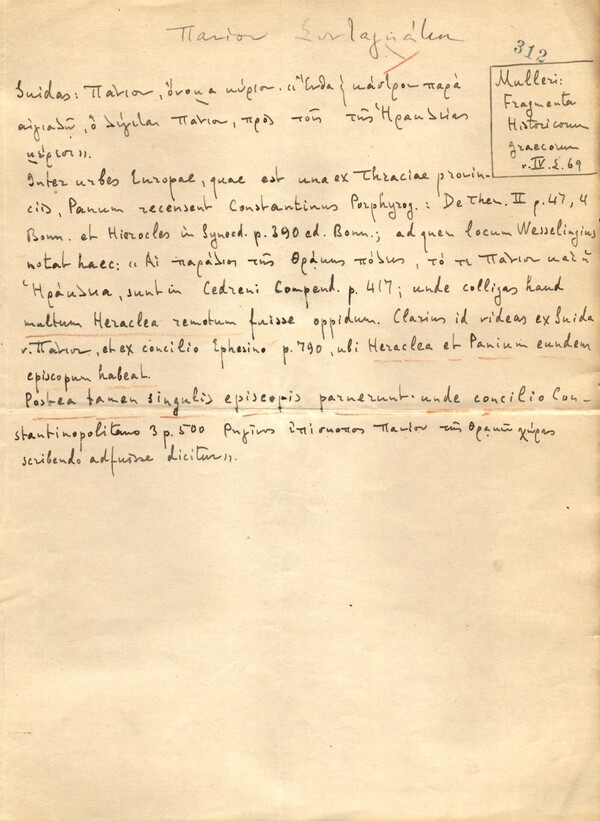 Πανίον
312
Mulleri:
Fragmenta
Historicorum
graecorum
v. IV. Σ. 69
Suidas: Πάνιον, ὄνομα κύριον. «Ἔνθα ἦ κάστρον παρὰ
αἰγιαλῷ, ὃ λέγεται Πάνιον, πρὸς τοῖς τῆς Ἡρακλείας
μέρεσι».
Inter urbes Europae, quae est una ex Thraciae provin-
ciis, Panum recensent Constantinus Porphyrog.: De Them. II p. 47, 4
Bonn. et Hierocles in Synecd. p. 390 ed. Bonn.; ad quem locum Wesselingius
notat haec: «Αἱ παράλιοι τῆς Θρᾴκης πόλεις, τό τε Πάνιον καὶ ἡ
Ἡράκλεια, sunt in Cedreni Compend. p. 417; unde colligas haud
multum Heraclea remotum fuisse oppidum. Clarius id videas ex Suida
v. Πάνιον, et ex concilio Ephesino p. 790, ubi Heraclea et Panium eundem
episcopum habeat.
Postea tamen singulis episcopis parnerunt. unde concilio Con-
stantinopolitano 3 p. 500 Ρηγῖνος ἐπίσκοπος Πανίου τῆς Θρᾳκῶν χώρας
scribendo adfuisse dicitur».